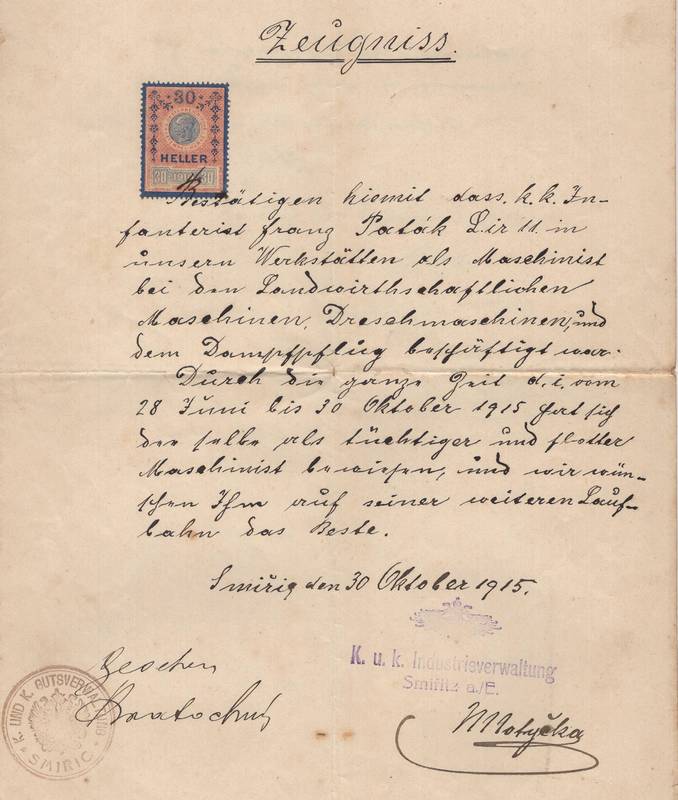 Zeugniss.
30
HELLER
30 30
Bestätigen hiemit dass k. k. In-
fanterist Franz Paták L.ir 11. in
unsern Werkstätten als Maschinist
bei den Landwirthschaftlichen
Maschinen, Dreschmaschinen, und
dem Dampfpflug beschäftigt war.
Durch die ganze Zeit d. i. vom
28 Juni bis 30 Oktober 1915 hat sich
der selbe als tüchtiger und flotter
Maschinist bewiesen, und wir wün-
schen Ihm auf seiner weiteren Lauf-
bahn das Beste.
Smiřig den 30 Oktober 1915.
K. u. k. Industrieverwaltung
Smiřitz a./E.
K. UND K. GUTSVERWALTUNG
SMIRIC